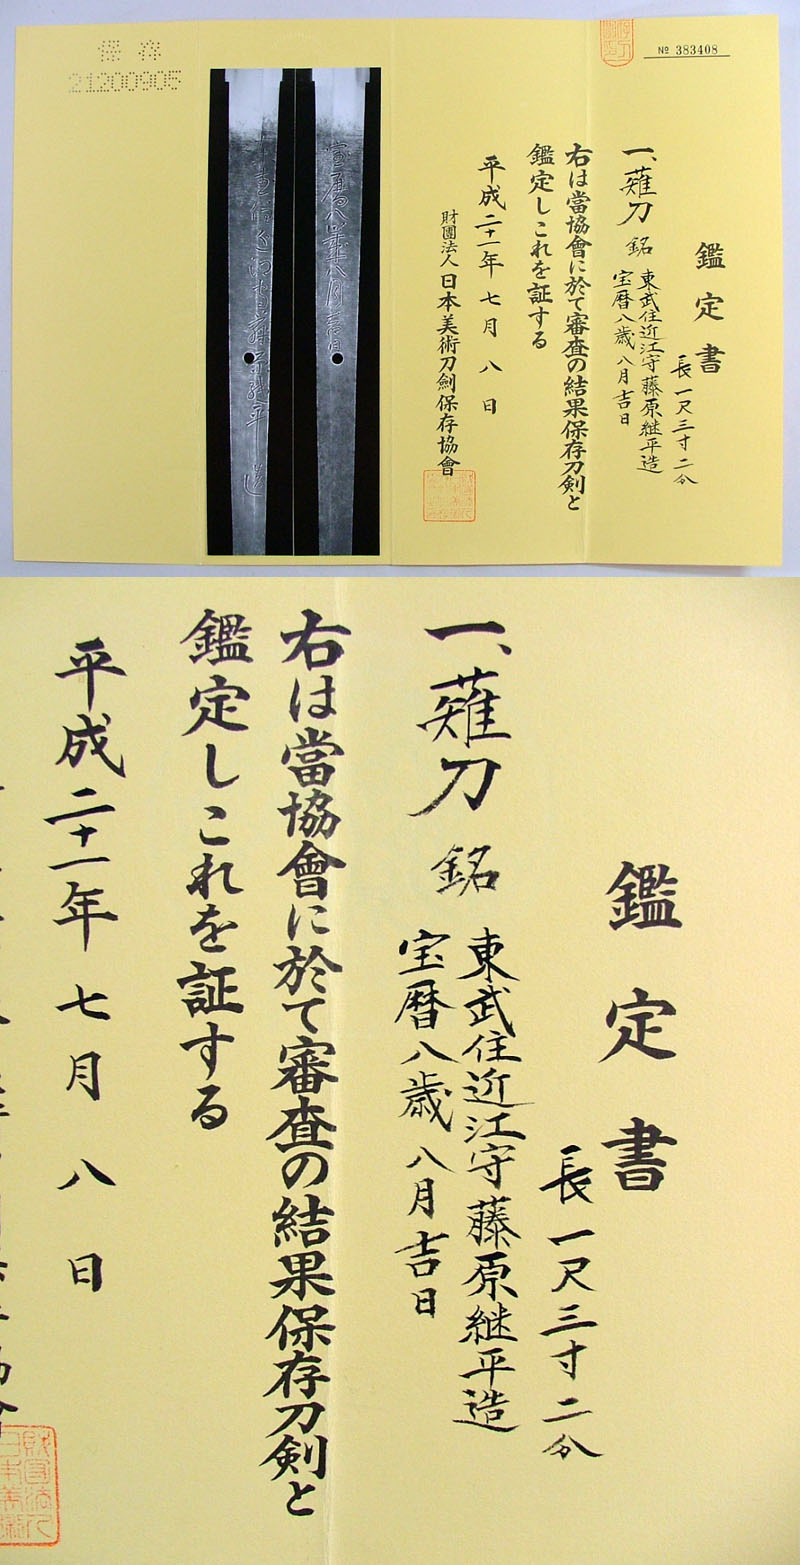 保存
21200905
№ 383408
鑑定書
長一尺三寸二分
一、薙刀 銘 東武住近江守藤原継平造
宝暦八歳八月吉日
右は當協會に於て審査の結果保存刀剣と
鑑定しこれを証する
平成二十一年七月八日
財團法人日本美術刀劍保存協會
宝暦八歳八月吉日
東武住近江守藤原継平造
鑑定書
長一尺三寸二分
一、薙刀 銘 東武住近江守藤原継平造
宝暦八歳八月吉日
右は當協會に於て審査の結果保存刀剣と
鑑定しこれを証する
平成二十一年七月八日